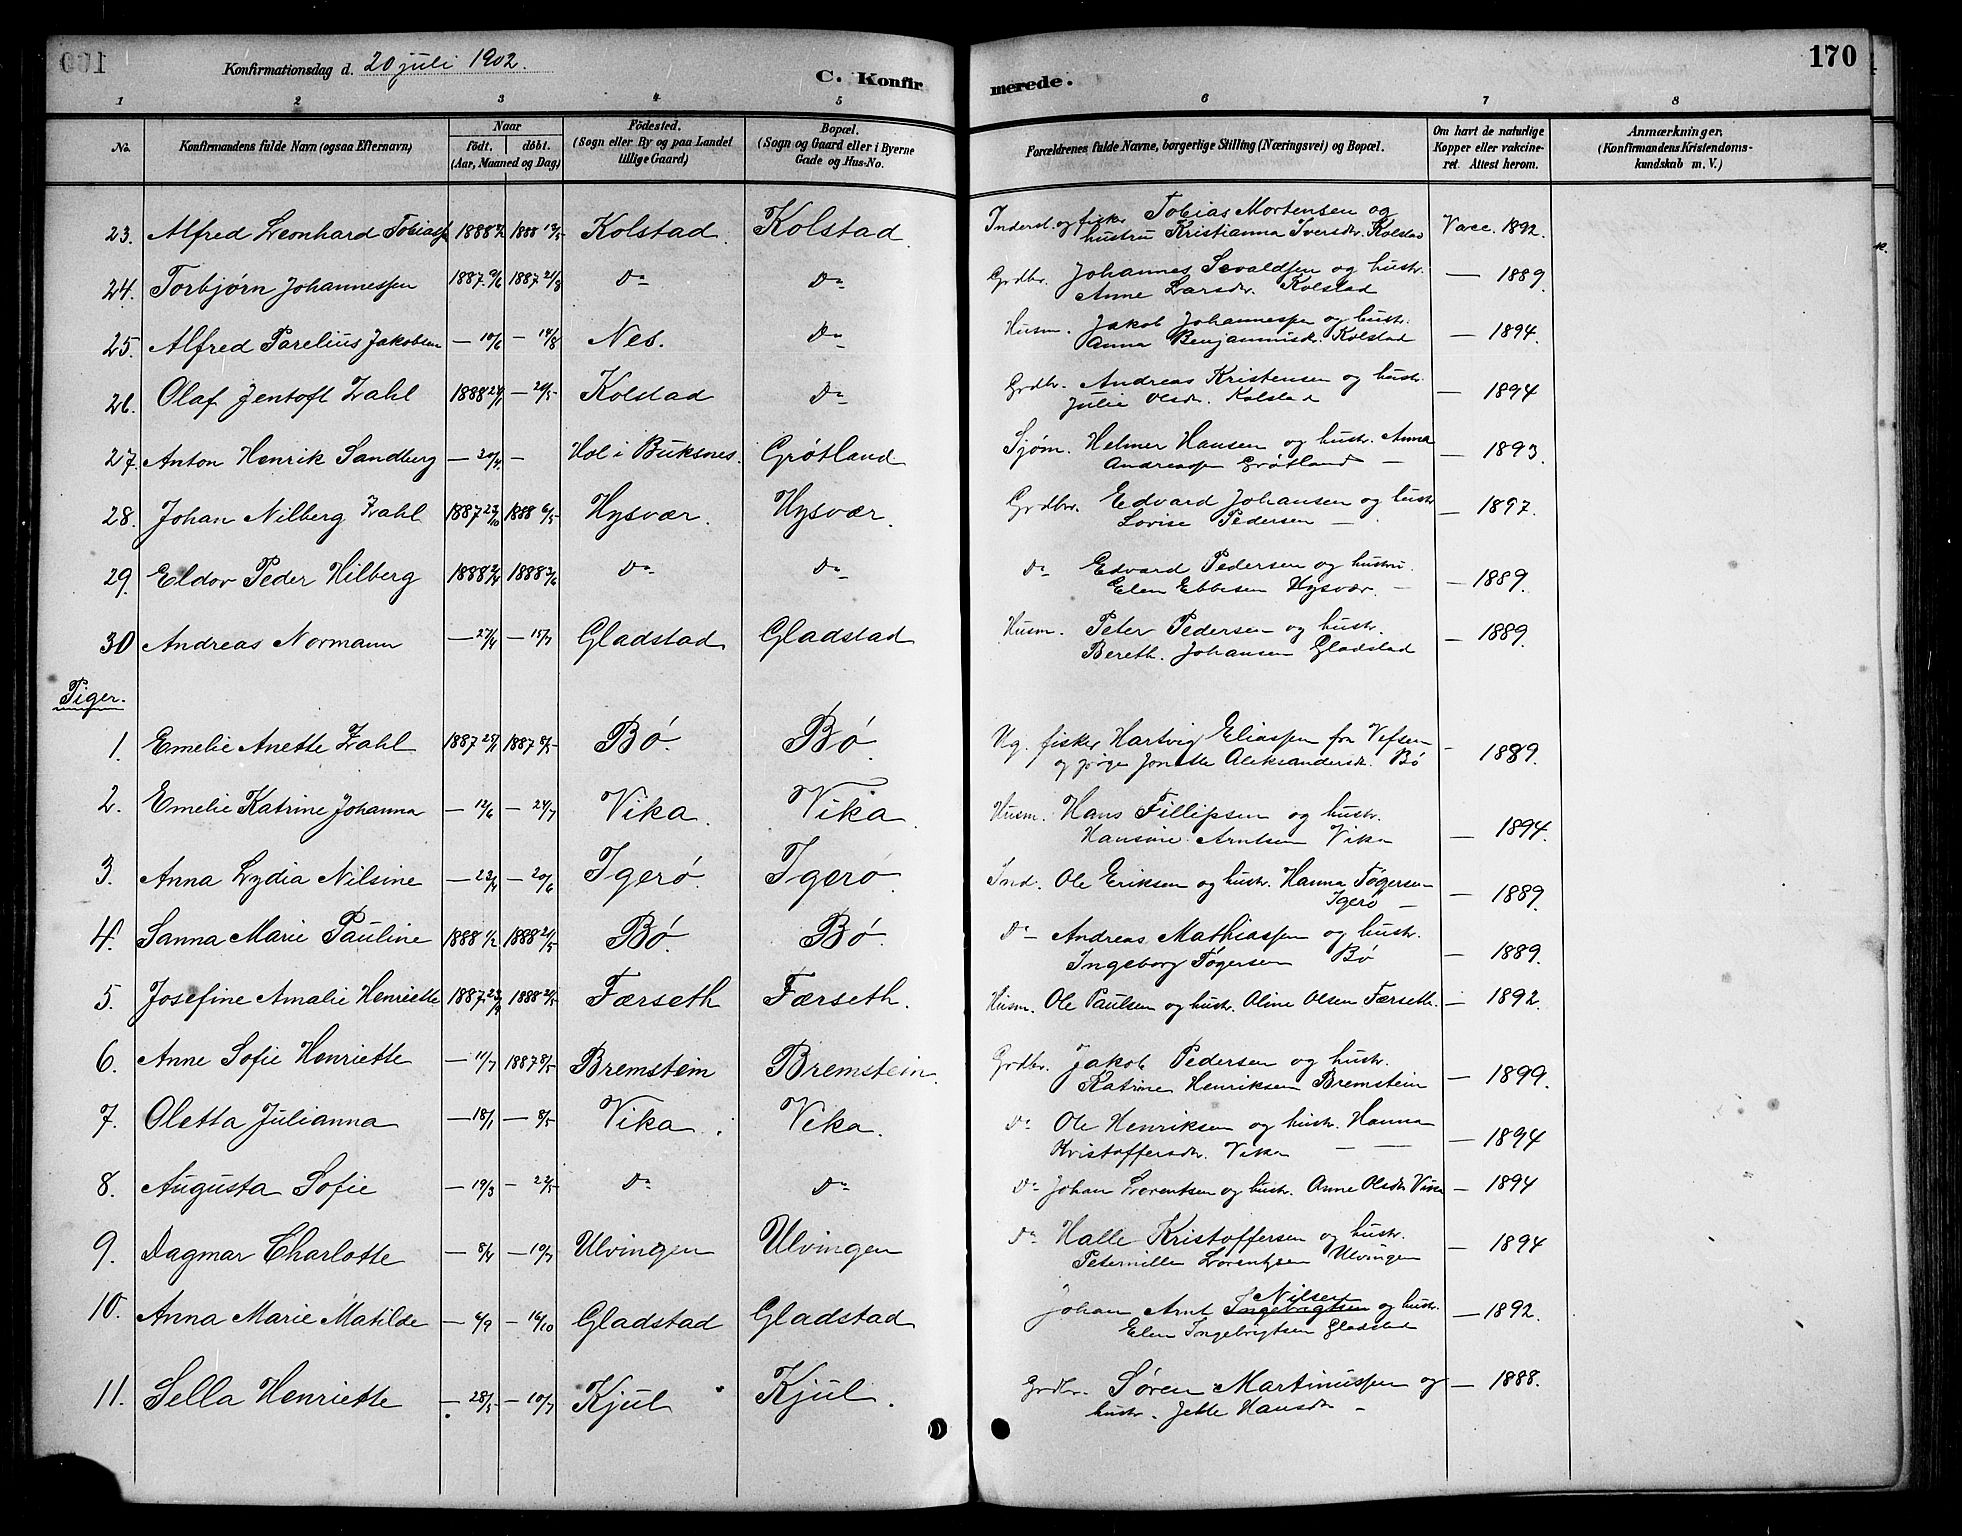 170
Konfirmationsdag d. 20 juli 1902.
C. Konfirmerede.
1 2 3 4 5 6 7 8
No. Konfirmandens fulde Navn (ogsaa Efternavn) Naar födt. döbt. (Aar, Maaned og Dag) Födested. (Sogn eller By og paa Landet tillige Gaard) Bopæl. (Sogn og Gaard eller i Byerne Gade og Hus-No. Forældrenes fulde Navne, borgerlige Stilling (Næringsvei) og Bopæl. Om havt de naturlige Kopper eller vakcineret. Attest herom. Anmærkninger. (Konfirmandens Kristendomskundskab m. V.)
23. Alfred Leonhard Tobiass 1888 1888 Kolstad. Kolstad. Inderst. og fisker Tobias Mortensen og
hustru Kristianna Iversdr. Kolstad Vacc. 1892.
24. Torbjørn Johannessen 1887 9/6 1887 21/8 Do Do Grdbr. Johannes Sevaldsen og hustr.
Anne Larsdr. Kolstad — 1889.
25. Alfred Parelius Jakobsen — 10/6 — 14/8 Nes. Do Husm. Jakob Johannessen og hustr.
Anna Benjaminsdr. Kolstad — 1894.
26. Olaf Jentoft Zahl 1888 — 20/5 Kolstad Do Grdbr. Andreas Kristensen og hustr.
Julie Olsdr. Kolstad — 1894
27. Anton Henrik Sandberg — 20/4 — Hol i Buksnes. Grøtland Sjøm. Helmer Hansen og hustr. Anna
Andreassen Grøtland — — 1893.
28. Johan Nilberg Zahl 1887 23/10 1888 6/5 Hysvær. Hysvær. Grdbr. Edvard Johansen og hustr
Lovise Pedersen — — 1897.
29. Eldov Peder Hilberg 1888 2/4 1888 3/6 Do Do Do Edvard Pedersen og hustru.
Elen Ebbesen Hysvær. — — 1889.
30 Andreas Normann — 27/4 — 15/7 Gladstad Gladstad Husm. Peter Pedersen og hustr.
Bereth. Johansen Gladstad — 1889.
Piger.
1. Emelie Anette Zahl 1887 25/1 1887 8/5 Bø. Bø. Ug. fisker Hartvig Eliassen fra Vefsen
og pige Jonette Aleksandersdr. Bø — 1889.
2. Emelie Katrine Johanna — 12/6 — 24/7 Vika. Vika. Husm. Hans Fillipsen og hustr.
Hansine Arntsen Vika — 1894.
3. Anna Lydia Nilsine — 22/4 — 20/6 Igerø. Igerø. Ind. Ole Eriksen og hustr. Hanna Tøgersen
Igerø — — 1889.
4. Sanna Marie Pauline 1888 1/2 1888 21/5 Bø. Bø. Do Andreas Mathiassen og hustr.
Ingeborg Tøgersen Bø — 1889.
5. Josefine Amalie Henriette 1887 23/9 1888 21/5 Færseth Færseth. Husm. Ole Paulsen og hustr. Aline Olsen Færseth. — 1892.
6. Anne Sofie Henriette — 11/7 1887 8/5 Bremstein Bremstein. Grdbr. Jakob Pedersen og hustr.
Katrine Henriksen Bremstein — 1899.
7. Oletta Julianna — 18/1 — 8/5 Vika. Vika. Do Ole Henriksen og hustr. Hanna
Kristoffersdr. Vika — — — 1894
8. Augusta Sofie — 19/3 — 22/5 Do Do Do Johan Lorentsen og hustr. Anne Olsdr Vika — 1894
9. Dagmar Charlotte — 8/4 — 10/7 Ulvingen Ulvingen Do Halle Kristoffersen og hustr.
Peternille Lorentzen Ulvingen — 1894
10. Anna Marie Matilde — 6/9 — 16/10 Gladstad Gladstad Johan Arnt Ingebrigtsen Nilsen og hustr.
Elen Ingebrigtsen Gladstad — 1892.
11. Sella Henriette — 28/5 — 10/7 Kjul Kjul. Grdbr. Søren Martinussen og
hustr. Jette Hansdr — — 1888.